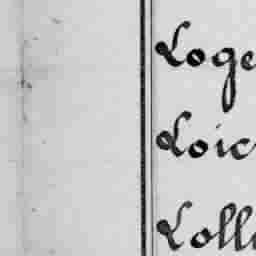 Loge
Loic
Loll